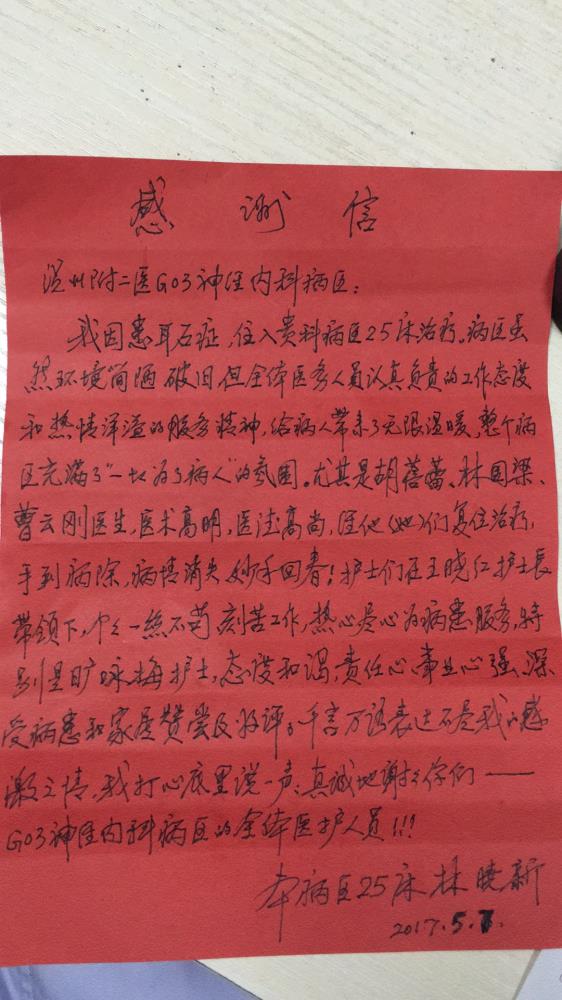 感谢信
温州附二医G03神经内科病区：
我因患耳石症，住入贵科病区25床治疗。病区虽
然环境简陋破旧，但全体医务人员认真负责的工作态度
和热情洋溢的服务精神，给病人带来了无限温暖，整个病
区充满了“一切为了病人”的氛围。尤其是胡蓓蕾、林国梁、
曹云刚医生，医术高明，医德高尚，经他（她）们复位治疗，
手到病除，病情消失，妙手回春！护士们在王晓红护士长
带领下，个个一丝不苟，刻苦工作，热心尽心为病患服务，特
别是旷咏梅护士，态度和谒，责任心、事业心强，深
受病患和家属赞赏及好评。千言万语表达不尽我的感
激之情，我打心底里说一声：真诚地谢谢你们——
G03神经内科病区的全体医护人员!!!
本病区25床 林晓新
2017.5.7.